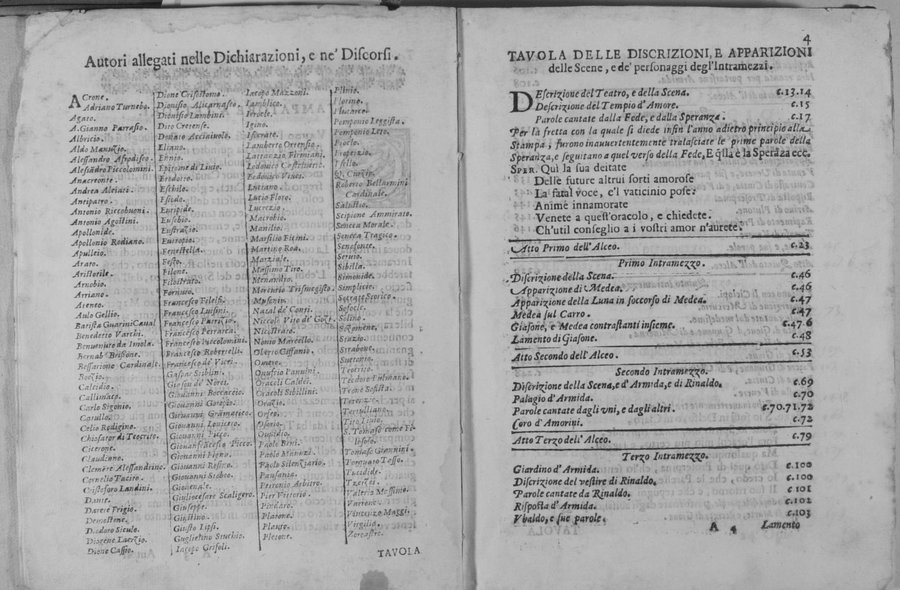 Autori allegati nelle Dichiarazioni, e ne' Discorsi.
ACrone.
Adriano Turnebo.
Agato.
A. Gianno Parrasio.
Albricio.
Aldo Manuzio.
Alessandro Afrodiseo.
Alessādro Piccolomini.
Anacreonte.
Andrea Alciati.
Antipatro.
Antonio Riccoboni.
Antonio Agostini.
Apollonide.
Apollonio Rodiano.
Apulleio.
Arato.
Aristotile.
Arnobio.
Arriano.
Ateneo.
Aulo Gellio.
Batista Guarini Caual
Benedetto Varchi.
Benuenuto da Imola.
Bernab Brissone.
Bessarione Cardinale.
Boezio.
Calcidio.
Callimaco.
Carlo Sigonio.
Catullo.
Celio Rodigino.
Chiosator di Teocrito.
Cicerone.
Claudiano.
Clemēte Alessandrino.
Cornelio Tacito.
Cristoforo Landini.
Dante.
Darete Frigio.
Demostene.
Diodoro Siculo.
Diogene Laerzio.
Dione Cassio.
Dione Crisostomo.
Dionisio Alicarnaseo.
Dionisio Lambini.
Dite Cretense.
Donato Acciaiuolo.
Eliano.
Ennio.
Epitome di Liuio.
Erodoto.
Eschilo.
Esiodo.
Euripide.
Eusebio.
Eustazio.
Eutropio.
Fenestella.
Festo.
Filone.
Filostrato.
Fornuto.
Francesco Filelfi.
Francesco Luisini.
Francesco Patrizio.
Francesco Petrarca.
Francesco Piccolomini.
Francesco Robertelli.
Francesco de' Vieri.
Gaspar Stiblini.
Giason de' Nores.
Giouanni Boccaccio.
Giouanni Gramatico.
Giouanni Pico.
Giouanfrācesco Pico.
Giouanni Pigna.
Giouanni Stobeo.
Giuuenale.
Giuliocesare Scaligero.
Giuseppe.
Giustino.
Giusto Lipsi.
Guglielmo Stuchio.
Iacopo Grifoli.
Iacopo Mazzoni.
Iamblico.
Igino.
Isocrate.
Lamberto Ortensio.
Lattanzio Firmiani.
Lodouico Casteluetri.
Lodouico Viues.
Luciano.
Lucio Floro.
Lucrezio.
Macrobio.
Manilio.
Marsilio Ficini.
Marziale.
Massimo Tiro.
Menandro.
Mercurio Trismegisto.
Museo.
Natal de' Conti.
Nicostrato.
Nonio Marcello.
Omero.
Onufrio Panuini.
Oracoli Caldei.
Oracoli Sibillini.
Orazio.
Orfeo.
Ouidio.
Paolo Beni.
Paolo Manuzi.
Paolo Silenziario.
Pausania.
Petronio Arbitro.
Pier Vittorio.
Pindaro.
Platone.
Plauto.
Plinio.
Plotino.
Plutarco.
Pomponio Leto.
Proclo.
Properzio.
Roberto Bellarmini
Cardinale.
Salustio.
Scipione Ammirato.
Seneca Morale.
Seneca Tragico.
Senofonte.
Seruio.
Sibilla.
Simonide.
Simplicio.
Sofocle.
Solino.
Stazio.
Strabone.
Suetonio.
Teocrito.
Tertulliano.
Tito Liuio.
S. Tomaso
Tomaso Giannini.
Torquato Tasso.
Tucidide.
Valerio Massimo.
Varrone.
Vincenzo Maggi.
Virgilio.
Zoroastro.
TAVOLA
4
TAVOLA DELLE DISCRIZIONI, E APPARIZIONI
delle Scene, e de' personaggi degl'Intramezzi.
DEscrizione del Teatro, e della Scena. c.13.14
Descrizione del Tempio d'Amore. c.15
Parole cantate dalla Fede, e dalla Speranza. c.17
Per la fretta con la quale si diede infin l'anno adietro principio alla
Stampa, furono inauuertentemente tralasciate le prime parole della
Speranza, e seguitano a quel verso della Fede, E q̄lla è la Speraza ecc.
SPER. Qui la sua deitate
Delle future altrui sorti amorose
La fatal voce, e'l vaticinio pose.
Anime innamorate
Venete a quest'oracolo, e chiedete.
Ch'util conseglio a i vostri amor n'aurete.
Atto Primo dell'Alceo. c.23
Primo Intramezzo.
Discrizione della Scena. c.46
Apparizione di Medea. c.46
Apparizione della Luna in soccorso di Medea. c.47
Medea sul Carro. c.47
Giasone, e Medea contrastanti insieme. c.47 6
Lamento di Giasone. c.48
Atto Secondo dell'Alceo. c.53
Secondo Intramezzo.
Discrizione della Scena, e d'Armida, e di Rinaldo. c.69
Palagio d'Armida. c.70
Parole cantate dagli vni, e dagli altri. c.70.71.72
Coro d'Amorini. c.72
Atto Terzo dell'Alceo. c.79
Terzo Intramezzo.
Giardino d'Armida. c.100
Discrizione del vestire di Rinaldo. c.100
Parole cantate da Rinaldo. c 101
Risposta d'Armida. c.102
Vbaldo, e sue parole. c.103
A 4 Lamento